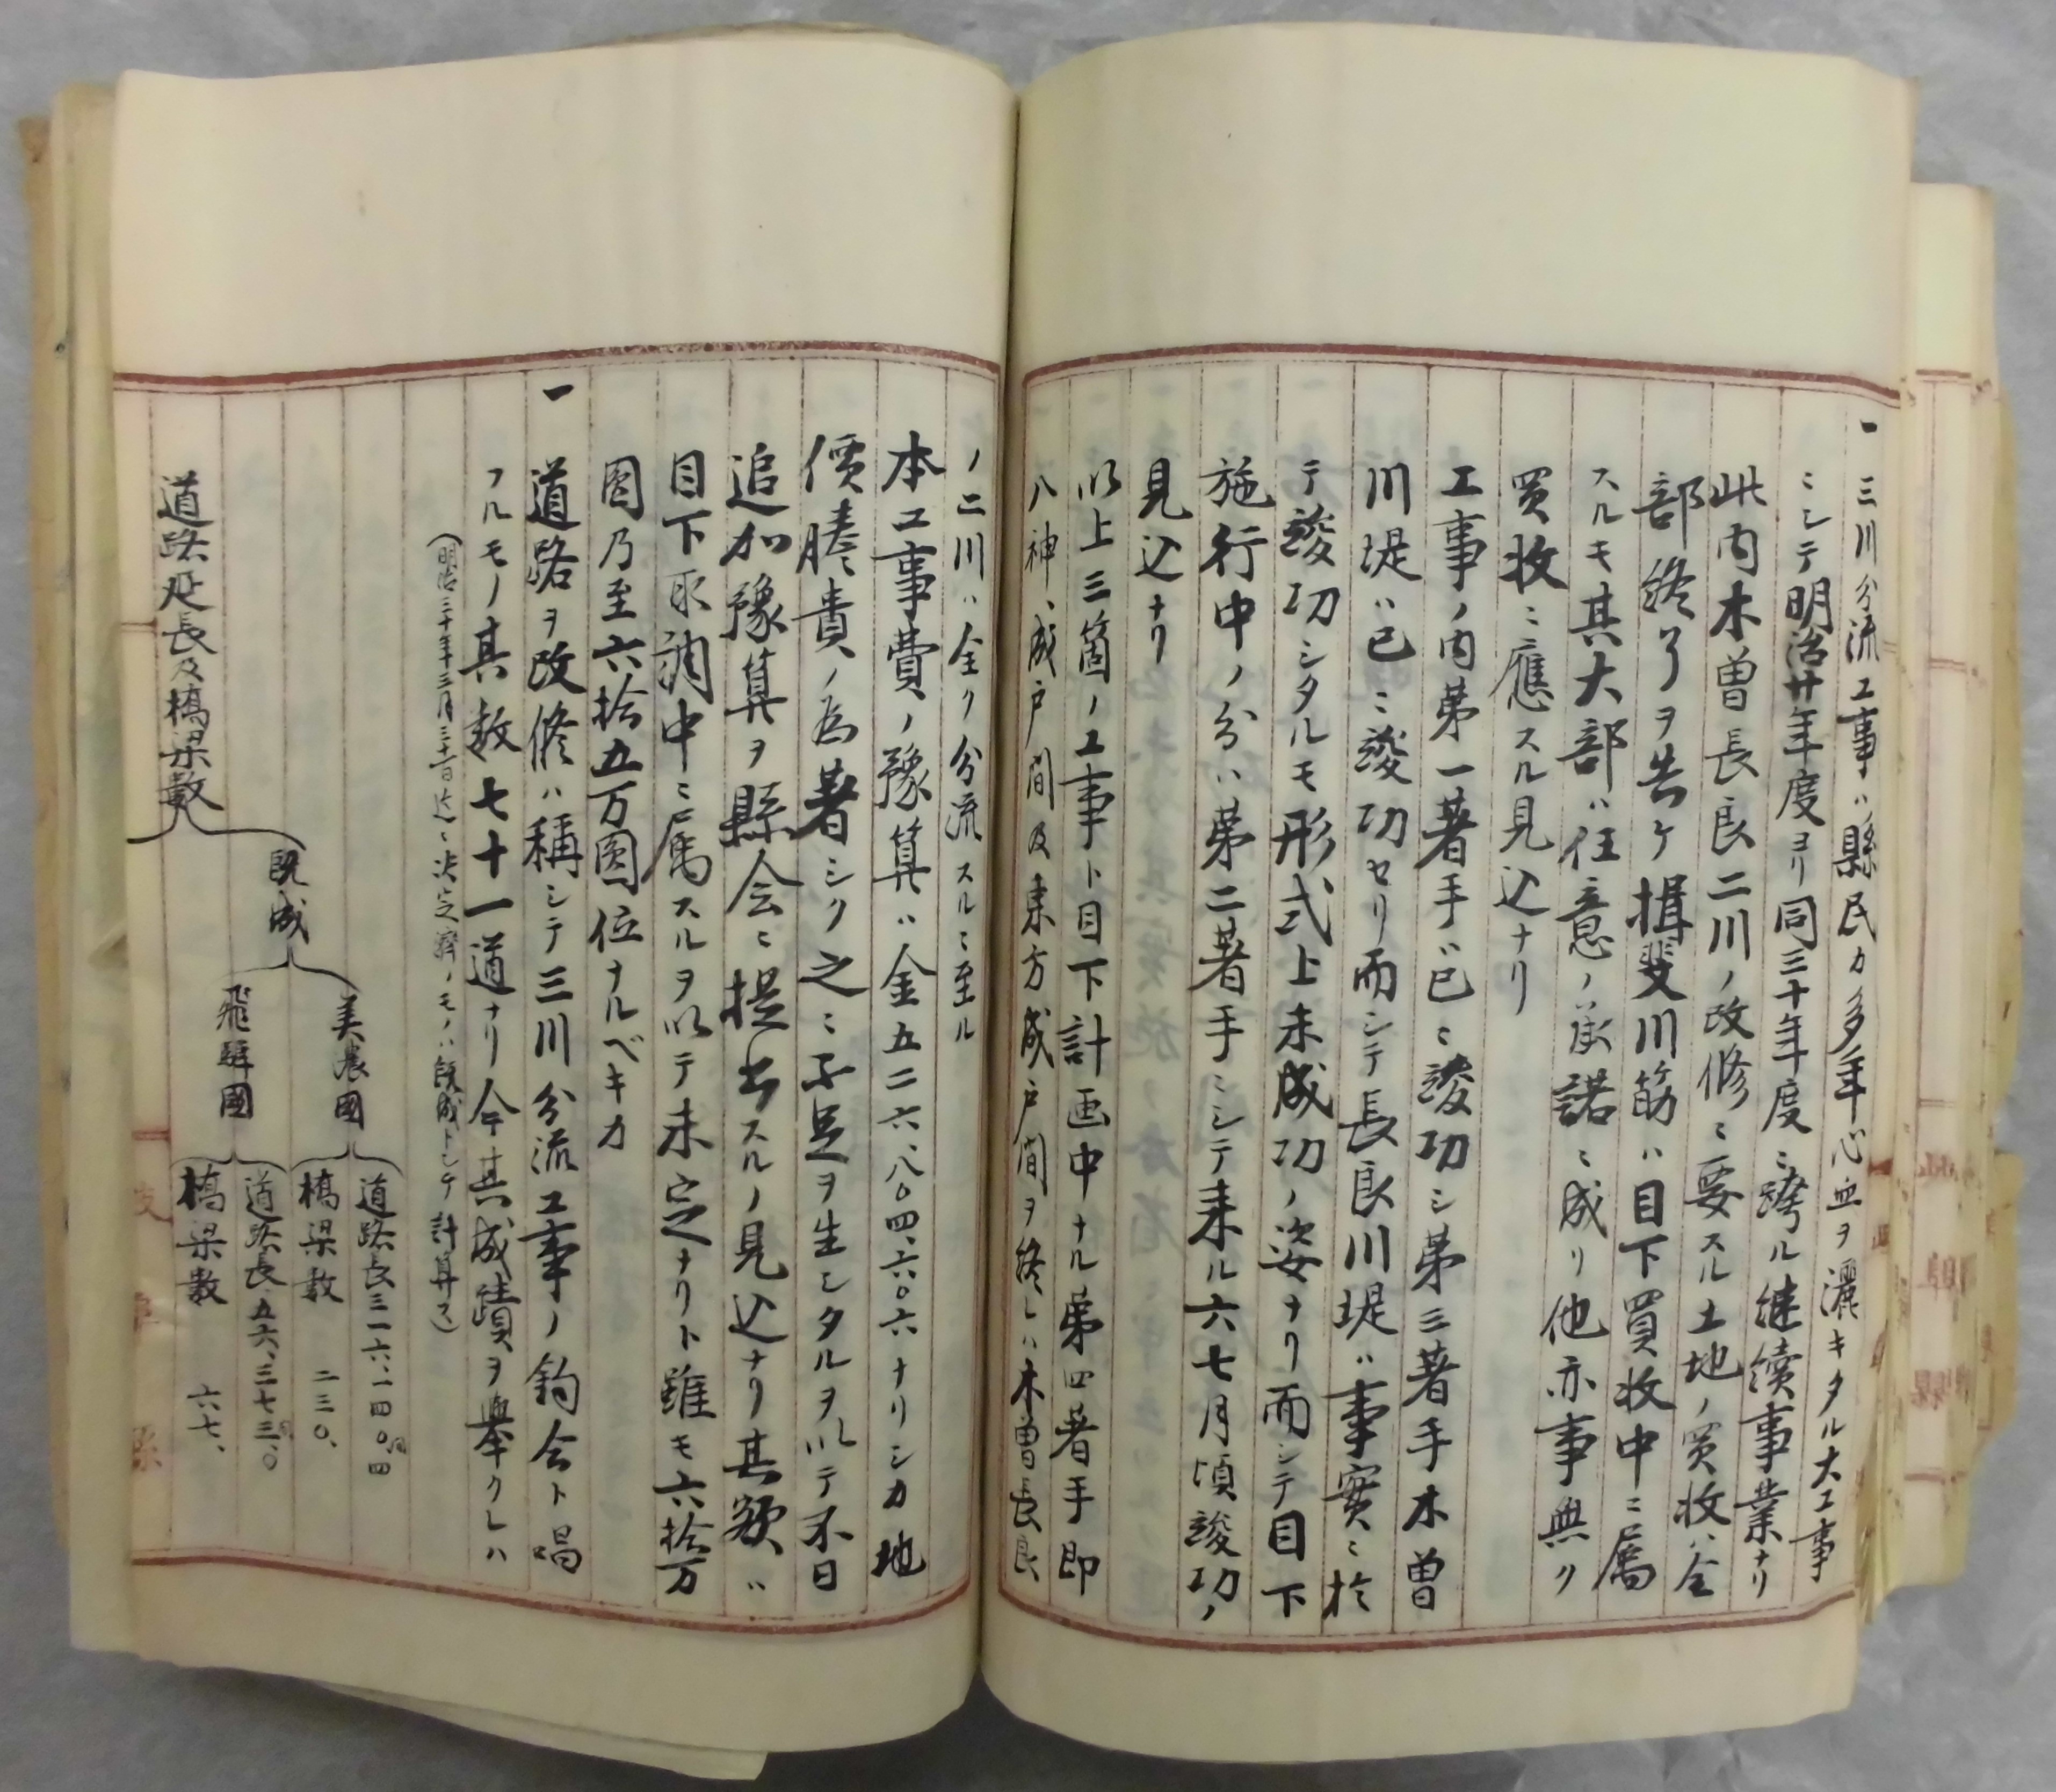 一 三川分流工事ハ縣民カ多年心血ヲ灑キタル大工事
ニシテ明治廿年度ヨリ同三十年度ニ跨ル継続事業ナリ
此内木曽長良二川ノ改修ニ要スル土地ノ買收ハ全
部終了ヲ告ケ揖斐川筋ハ目下買收中ニ属
スルモ其大部ハ任意ノ承諾ニ成リ他亦事無ク
買收ニ應スル見込ナリ
工事ノ内第一著手ハ已ニ竣功シ第三著手木曽
川堤ハ已ニ竣功セリ而シテ長良川堤ハ事実ニ於
テ竣功シタルモ形式上未成功ノ姿ナリ而シテ目下
施行中ノ分ハ第二著手ニシテ来ル六七月頃竣功ノ
見込ナリ
以上三箇ノ工事ト目下計画中ナル第四著手即
八神、成戸間及東方成戸間ヲ終レハ木曽長良
ノ二川ハ全ク分流スルニ至ル
本工事費ノ豫算ハ金五二六、八〇四、六〇六ナリシカ地
價騰貴ノ為著シク之ニ不足ヲ生シタルヲ以テ不日
追加豫算ヲ縣会ニ提出スルノ見込ナリ其額ハ
目下取調中ニ属スルヲ以テ未定ナリト雖モ六拾万
圓乃至六拾五万圓位ナルベキカ
一 道路ヲ改修ハ稱シテ三川分流工事ノ釣合ト唱
フルモノ其数七十一道ナリ今其成蹟ヲ舉クレハ
(明治三十年三月三十一日迄ニ決定済ノモノハ既成トシテ計算ス)
道路延長及橋梁數
既成
美濃國
道路長三一六、一四〇、四
橋梁数 二三〇、
飛騨國
道路長五六、三七三、〇
橋梁数 六七、